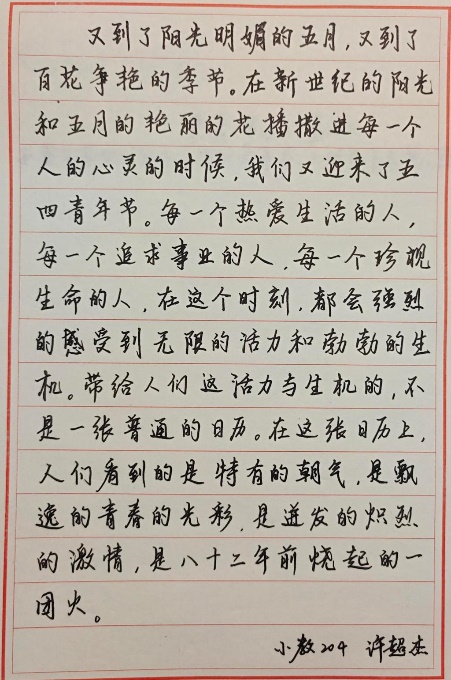 又到了阳光明媚的五月,又到了
百花争艳的季节。在新世纪的阳光
和五月的艳丽的花播撒进每一个
人的心灵的时候,我们又迎来了五
四青年节。每一个热爱生活的人,
每一个追求事业的人,每一个珍视
生命的人,在这个时刻,都会强烈
的感受到无限的活力和勃勃的生
机。带给人们这活力与生机的,不
是一张普通的日历。在这张日历上,
人们看到的是特有的朝气,是飘
逸的青春的光彩,是迸发的炽烈
的激情,是八十二年前烧起的一
团火。
小教204 许超杰